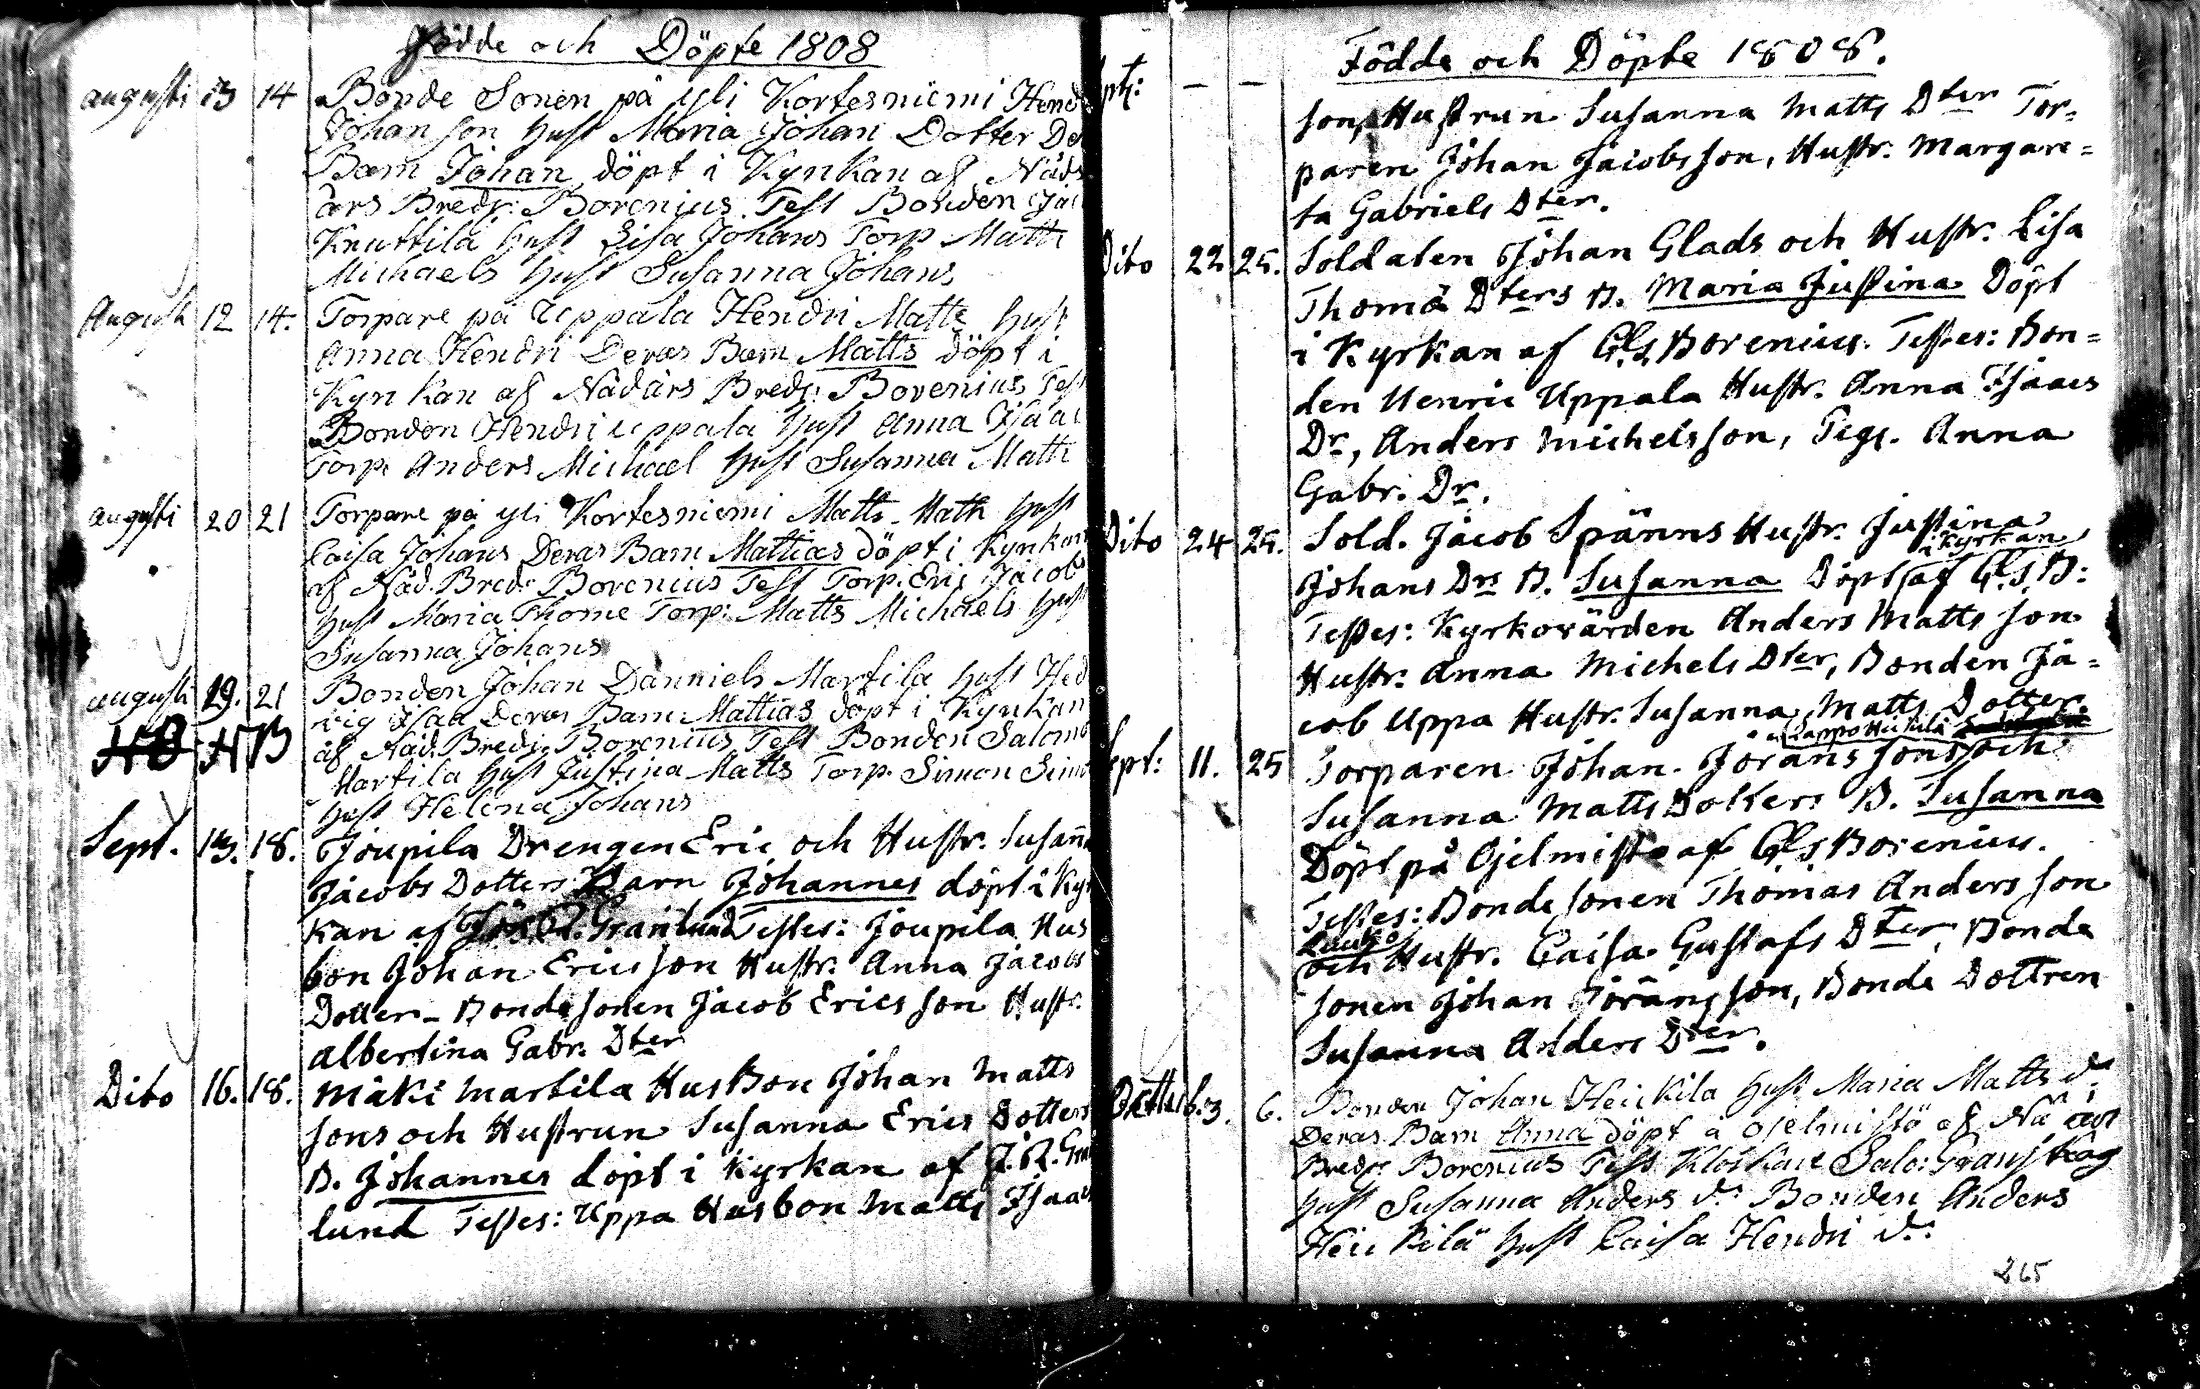 Födde och Döpte 1808
augusti 13 14 Bonde Sonen på yli Kortesniemi Hend
Johan son hust Maria Johan Dotter De
Barn Johan döpt i Kyrkan af Nåds
års Predr: Borenius Test Bonden Jac
Knuttila hust Lisa Johans Torp Matts
Michaels hust Susanna Johans
August 12 14. Torpare på Uppala Hendri Matts hust
Anna Hendri Deras Barn Matts döpt i
Kyrkan af Nådårs Predr: Borenius Test
Bonden Hendri uppala hust Anna Isaac
Torp. Anders Michael hust Susanna Matts
augusti 20 21 Torpare på yli Kortesniemi Matts Matts hust
Caisa Johans Deras Barn Mattias döpt i Kyrkan
af Nåd. Predr: Borenius Test Torp. Eric Jacob
hust Maria Thome Torp: Matts Michaels hust
Susanna Johans
augusti 19. 21 Bonden Johan Danniels Martila hust Hed
vig Isaa Deras Barn Mattias döpt i Kyrkan
HB HB af Nåd. Predr: Borenius Test Bonden Salomo
Martila hust Justina Matts Torp. Simon Simo
hust Helena Johans
Sept. 13. 18. Joupila Drengen Eric och Hustr. Susann
Jacobs Dotters Barn Johannes döpt i Kyr
kan af J. R. Granlund Testes: Joupila Hus
bon Johan Ericsson Hustr. Anna Jacobs
Dotter - Bonde sonen Jacob Erics son Hustr.
Albertina Gabr. Dter
Dito 16. 18. Mäki Martila Husbon Johan Matts
sons och Hustrun Susanna Erics Dotters
B. Johannes döpt i Kyrkan af J. R. Gran
lund Testes: Uppa Husbon Matts Isaacs
Födde och Döpte 1808.
Sept: - - son, Hustrun Susanna Matts Dter Tor=
paren Johan Jacobsson, Hustr. Margare=
ta Gabriels Dter.
Dito 22 25. Soldaten Johan Glads och Hustr. Lisa
Thomä Dters B. Maria Justina Döpt
i Kyrkan af Gls Borenius. Testes: Bon=
den Henric Uppala Hustr. Anna Isaacs
Dr, Anders Michelsson, Pigs. Anna
Gabr. Dr.
Dito 24 25. Sold. Jacob Spänns Hustr. Justina
i Kyrkan
Johans Drs B. Susanna Döpt af Gls B:
Testes: Kyrkovärden Anders Matts son
Hustr. Anna Michels Dter, Bonden Ja=
cob Uppa Hustr. Susanna Matts Dotter
Lappo Heikilä
Sept: 11. 25 Torparen Johan Jörans sons och
Susanna Matts Dotters B. Susanna
Döpt på Ojelmisto af Gls Borenius.
Testes: Bonde sonen Thomas Anders son
Lauko
och Hustr. Caisa Gustafs Dter, Bonde
sonen Johan Jöransson, Bonde Dottren
Susanna Anders Dter.
Octob. 3. 6. Bonden Johan Heickila hust Maria Matts dr
Deras Barn Anna döpt å Ojelmistö af Nå års
Predr: Borenius Test Klockare Salo: Granskog
hust Susanna Anders dr Bonden Anders
Heickilä hust Caisa Hendri dr:
265